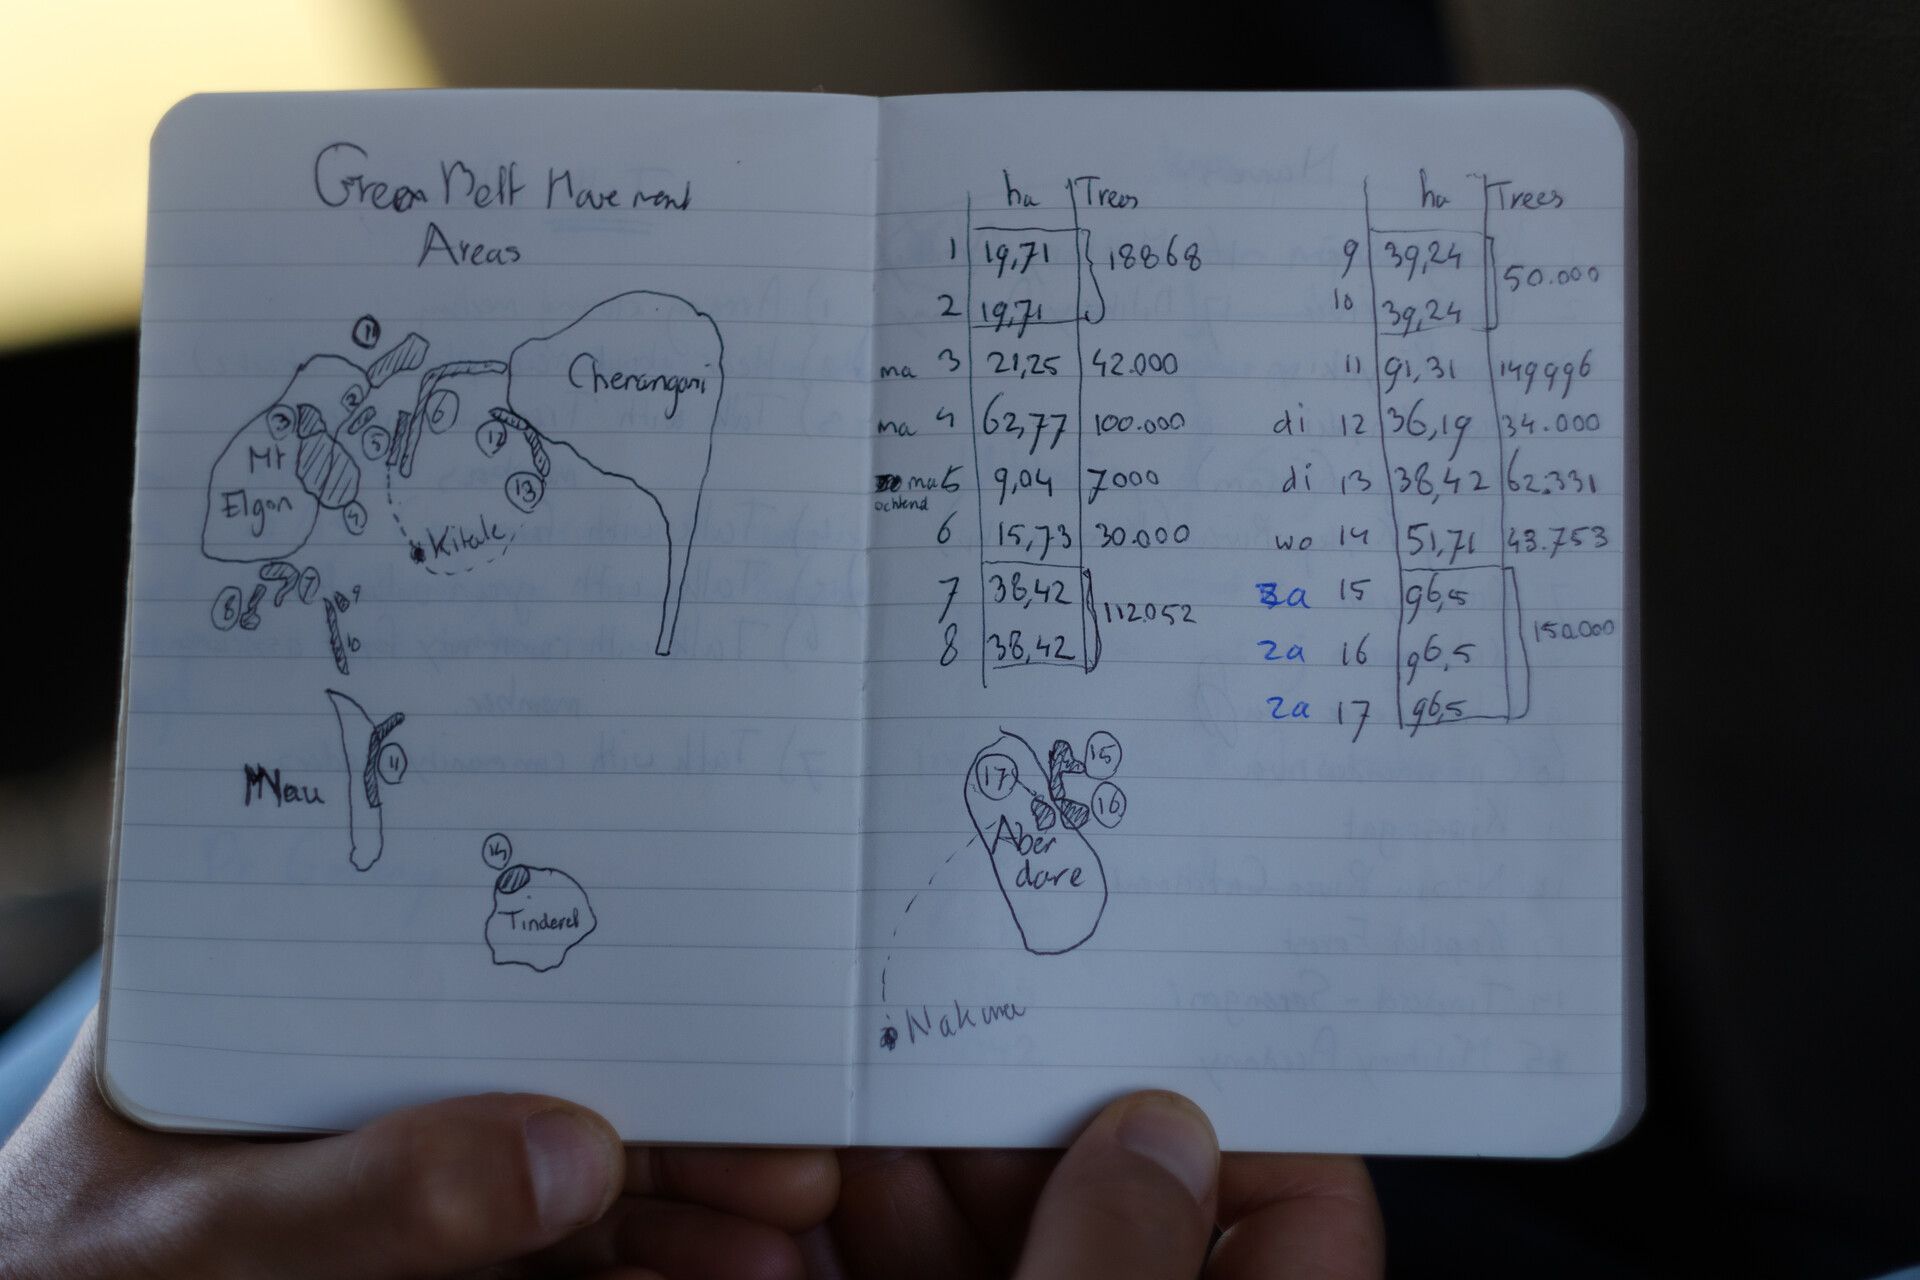 Green Belt Movement
Areas
11
Cherangani
2
3
6
5
12
Mt
Elgon
13
4
Kitale
7
8
9
10
Mau
11
14
Tinderet
ha Trees
1 19,71 18868
2 19,71
ma 3 21,25 42.000
ma 4 62,77 100.000
ma 5 9,04 7000
ochtend
6 15,73 30.000
7 38,42 112.052
8 38,42
ha Trees
9 39,24 50.000
10 39,24
11 91,31 149996
di 12 36,19 34.000
di 13 38,42 62.331
wo 14 51,71 43.753
za 15 96,5 150.000
za 16 96,5
za 17 96,5
15
17
16
Aber
dare